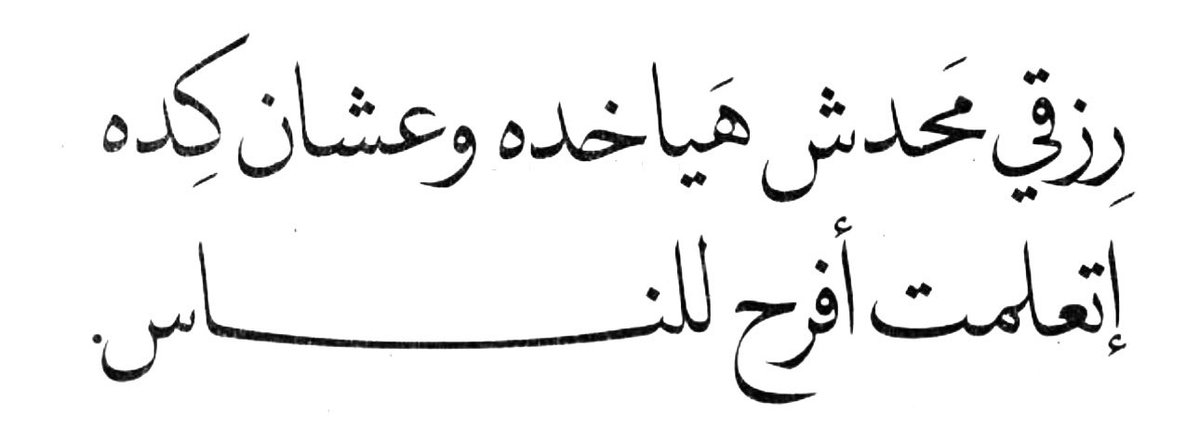 رِزقي مَحدش هَياخده وعشان كِده
إتعلمت أفرح للنـــــــــاس.